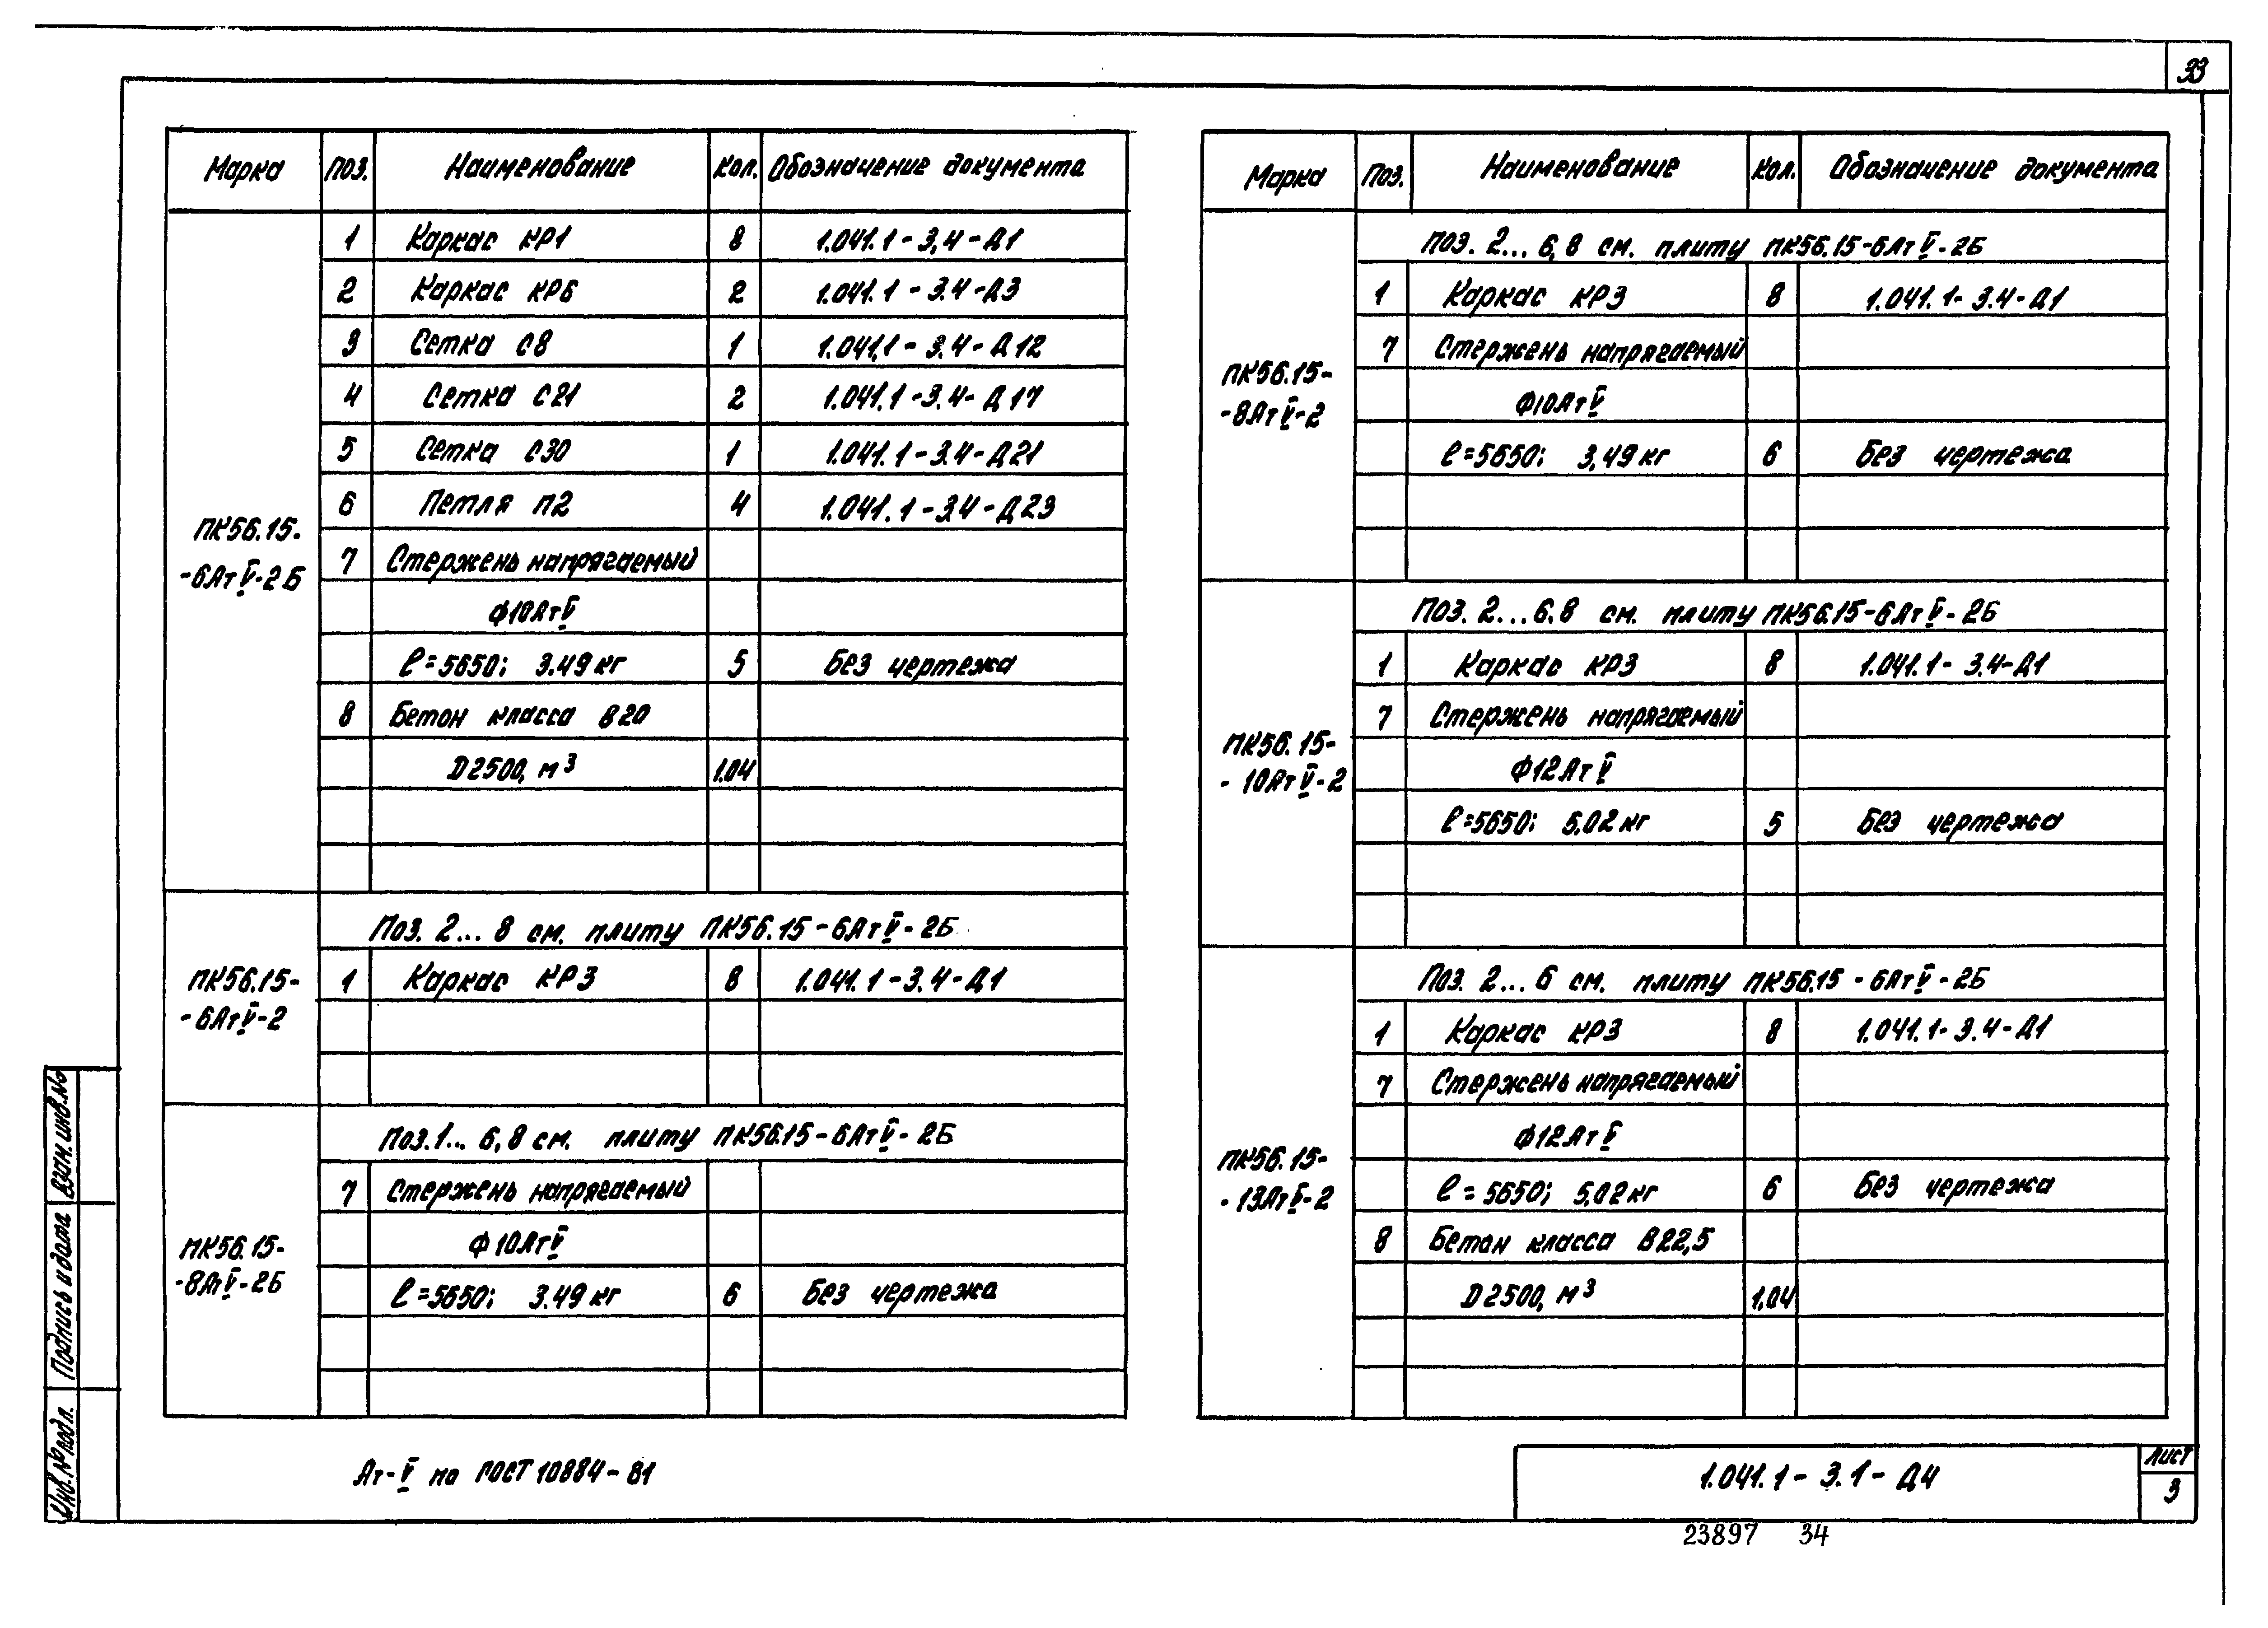 33
Марка Поз. Наименование Кол. Обозначение документа
ПК56.15-
-6АтV-2Б
1 Каркас КР1 8 1.041.1-3,4-Д1
2 Каркас КР6 2 1.041.1-3.4-Д3
3 Сетка С8 1 1.041.1-3.4-Д12
4 Сетка С21 2 1.041.1-3.4-Д17
5 Сетка С30 1 1.041.1-3.4-Д21
6 Петля П2 4 1.041.1-3.4-Д23
7 Стержень напрягаемый
Ф10АтV
ℓ=5650; 3.49кг 5 Без чертежа
8 Бетон класса В20
D2500, м³ 1.04
ПК56.15-
-6АтV-2
Поз. 2... 8 см. плиту ПК56.15-6АтV-2Б
1 Каркас КР3 8 1.041.1-3.4-Д1
ПК56.15-
-8АтV-2Б
Поз.1... 6,8 см. плиту ПК56.15-6АтV-2Б
7 Стержень напрягаемый
Ф10АтV
ℓ=5650; 3.49кг 6 Без чертежа
Марка Поз. Наименование Кол. Обозначение документа
ПК56.15-
-8АтV-2
Поз. 2... 6,8 см. плиту ПК56.15-6АтV-2Б
1 Каркас КР3 8 1.041.1-3.4-Д1
7 Стержень напрягаемый
Ф10АтV
ℓ=5650; 3,49кг 6 Без чертежа
ПК56.15-
-10АтV-2
Поз. 2...6.8 см. плиту ПК56.15-6АтV-2Б
1 Каркас КР3 8 1.041.1-3.4-Д1
7 Стержень напрягаемый
Ф12АтV
ℓ=5650; 5.02кг 5 Без чертежа
ПК56.15-
-13АтV-2
Поз. 2... 6 см. плиту ПК56.15-6АтV-2Б
1 Каркас КР3 8 1.041.1-3.4-Д1
7 Стержень напрягаемый
Ф12АтV
ℓ=5650; 5,02кг 6 Без чертежа
8 Бетон класса В22,5
D2500, м³ 1,04
Ат-V по ГОСТ 10884-81
1.041.1-3.1-Д4
Лист
3
23897 34
Взам. инв.№
Подпись и дата
Инв.№ подл.